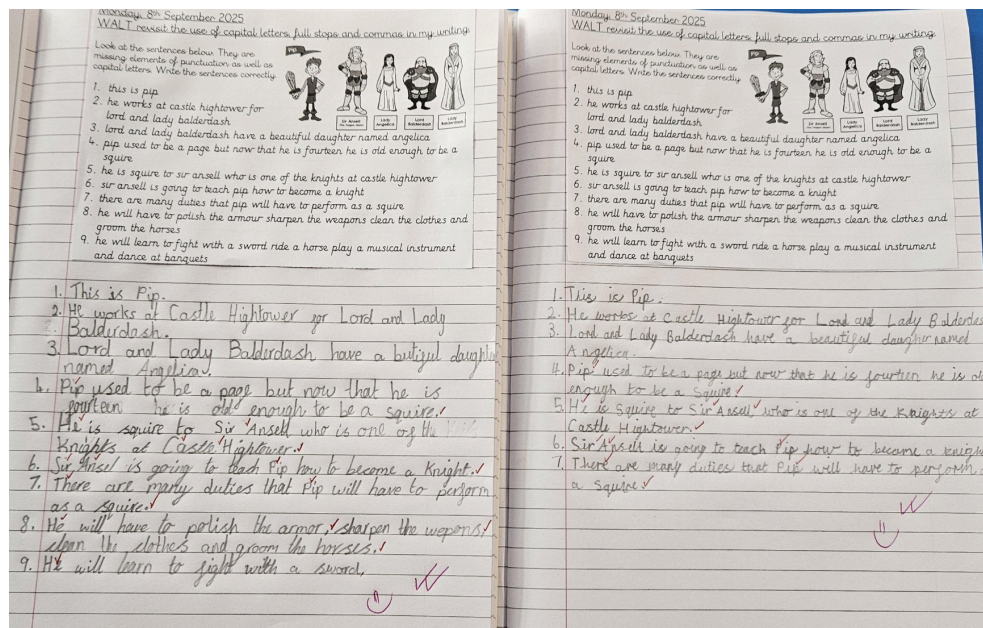 Monday, 8th September 2025
WALT revisit the use of capital letters, full stops and commas in my writing.
Look at the sentences below. They are
missing elements of punctuation as well as
capital letters. Write the sentences correctly.
Pip
Sir Ansell
Lady Angelica
Lord Balderdash
Lady Balderdash
1. this is pip
2. he works at castle hightower for
lord and lady balderdash
3. lord and lady balderdash have a beautiful daughter named angelica
4. pip used to be a page but now that he is fourteen he is old enough to be a
squire
5. he is squire to sir ansell who is one of the knights at castle hightower
6. sir ansell is going to teach pip how to become a knight
7. there are many duties that pip will have to perform as a squire
8. he will have to polish the armour sharpen the weapons clean the clothes and
groom the horses
9. he will learn to fight with a sword ride a horse play a musical instrument
and dance at banquets
1. This is Pip.
2. He works at Castle Hightower for Lord and Lady
Balderdash.
3. Lord and Lady Balderdash have a butiful daughter
named Angelina.
4. Pip used to be a page but now that he is
fourteen he is old enough to be a squire.
5. He is squire to Sir Ansell who is one of the
Knights at Castle Hightower.
6. Sir Ansel is going to teach Pip how to become a Knight.
7. There are many duties that Pip will have to perform
as a squire.
8. He will have to polish the armor, sharpen the wepons,
clean the clothes and groom the horses.
9. He will learn to fight with a sword,
Monday, 8th September 2025
WALT revisit the use of capital letters, full stops and commas in my writing.
Look at the sentences below. They are
missing elements of punctuation as well as
capital letters. Write the sentences correctly.
Pip
Sir Ansell
Lady Angelica
Lord Balderdash
Lady Balderdash
1. this is pip
2. he works at castle hightower for
lord and lady balderdash
3. lord and lady balderdash have a beautiful daughter named angelica
4. pip used to be a page but now that he is fourteen he is old enough to be a
squire
5. he is squire to sir ansell who is one of the knights at castle hightower
6. sir ansell is going to teach pip how to become a knight
7. there are many duties that pip will have to perform as a squire
8. he will have to polish the armour sharpen the weapons clean the clothes and
groom the horses
9. he will learn to fight with a sword ride a horse play a musical instrument
and dance at banquets
1. This is Pip.
2. He works at Castle Hightower for Lord and Lady Balderdas
3. Lord and Lady Balderdash have a beautiful daughter named
Angelica.
4. Pip used to be a page but now that he is fourteen he is ol
enough to be a Squire.
5. He is Squire to Sir Ansell who is one of the Knights at
Castle Hightower.
6. Sir Ansell is going to teach Pip how to became a knigh
7. There are many duties that Pip will have to perform
a Squire.